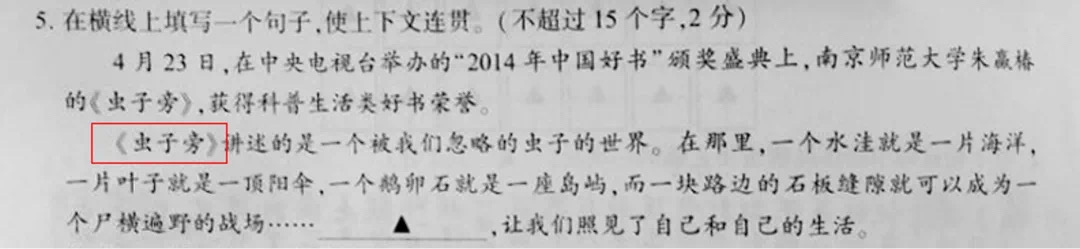 5. 在横线上填写一个句子,使上下文连贯。(不超过15个字,2分)
4月23日,在中央电视台举办的“2014年中国好书”颁奖盛典上,南京师范大学朱赢椿
的《虫子旁》,获得科普生活类好书荣誉。
《虫子旁》讲述的是一个被我们忽略的虫子的世界。在那里,一个水洼就是一片海洋,
一片叶子就是一顶阳伞,一个鹅卵石就是一座岛屿,而一块路边的石板缝隙就可以成为一
个尸横遍野的战场……▲,让我们照见了自己和自己的生活。